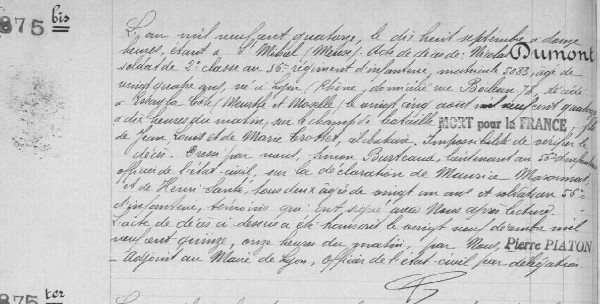 875 bis
L'an mil neuf cent quatorze, le dix huit septembre à douze
heures, étant à St Mihiel (Meuse). Acte de décès de Nicolas Dumont
soldat de 2e classe au 56e régiment d'infanterie, matricule 5083, âgé de
vingt quatre ans, né à Lyon (Rhône), domicilié rue Boileau, décédé
à (Meurthe et Moselle) le vingt cinq août mil neuf cent quatorze
à dix heures du matin, sur le champ de bataille, MORT pour la FRANCE, fils
de Jean Louis et de Marie Crottet, célibataire. Impossibilité de vérifier le
décès. Dressé par nous, Simon lieutenant au d'infanterie
officier de l'état-civil, sur la déclaration de Maurice
et de Henri tous deux âgés de vingt un ans et soldats au 56e
d'infanterie, témoins qui ont signé avec Nous après lecture.
L'acte de décès ci dessus a été transcrit le vingt neuf décembre mil
neuf cent quinze, onze heures du matin, par Nous, Pierre PIATON
Adjoint au Maire de Lyon, officier de l'état civil par délégation.
875 ter